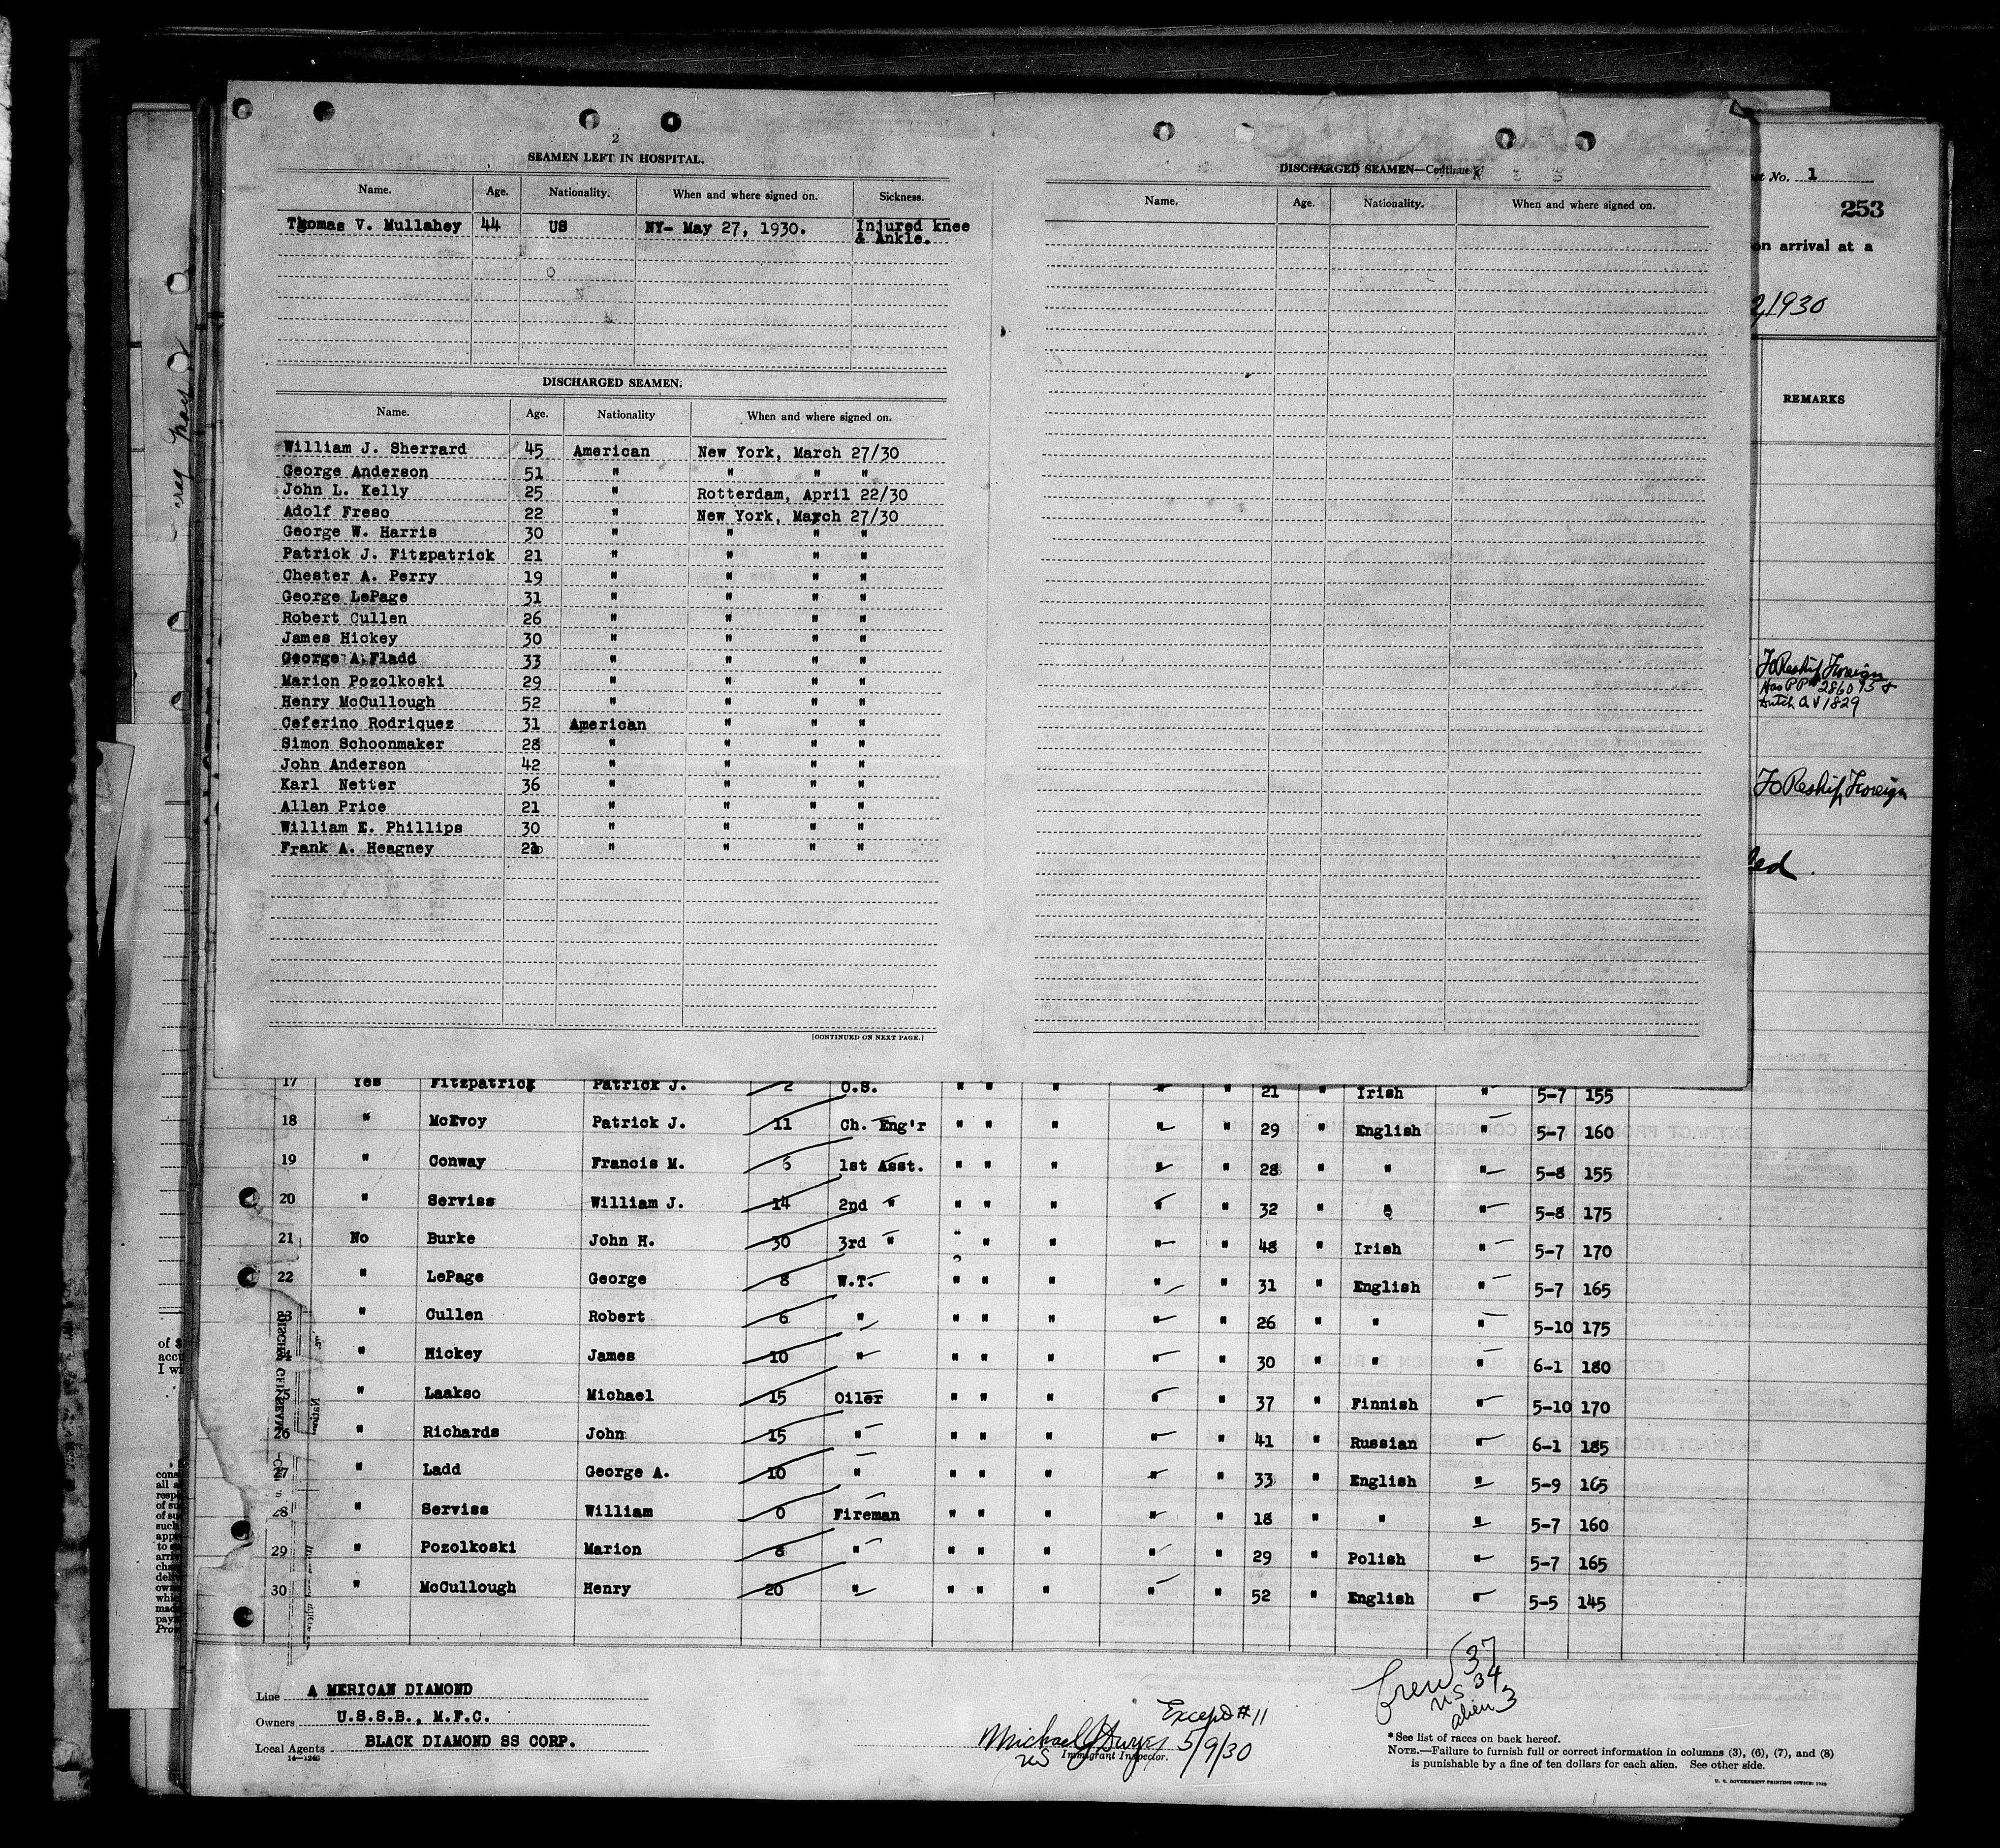 2
SEAMEN LEFT IN HOSPITAL.
Name. Age. Nationality. When and where signed on. Sickness.
Thomas V. Mullahey 44 US NY- May 27, 1930. Injured knee
& Ankle.
DISCHARGED SEAMEN.
Name. Age. Nationality When and where signed on.
William J. Sherrard 45 American New York, March 27/30
George Anderson 51 " " " "
John L. Kelly 25 " Rotterdam, April 22/30
Adolf Freso 22 " New York, March 27/30
George W. Harris 30 " " " "
Patrick J. Fitzpatrick 21 " " " "
Chester A. Perry 19 " " " "
George LePage 31 " " " "
Robert Cullen 26 " " " "
James Hickey 30 " " " "
George A. Fladd 33 " " " "
Marion Pozolkoski 29 " " " "
Henry McCullough 52 " " " "
Ceferino Rodriquez 31 American " " "
Simon Schoonmaker 28 " " " "
John Anderson 42 " " " "
Karl Netter 36 " " " "
Allan Price 21 " " " "
William E. Phillips 30 " " " "
Frank A. Heagney " " " "
[CONTINUED ON NEXT PAGE.]
DISCHARGED SEAMEN—Continued
Name. Age. Nationality. When and where signed on.
No. 1
253
on arrival at a
1930
REMARKS
To Reship Foreign
Has PP
Dutch QV 1829
To Reship Foreign
17 Yes Fitzpatrick Patrick J. 2 O.S. " " " " " 21 " Irish " 5-7 155
18 " McEvoy Patrick J. 11 Ch. Eng'r " " " " " 29 " English " 5-7 160
19 " Conway Francis M. 6 1st Asst. " " " " " 28 " " " 5-8 155
20 " Serviss William J. 14 2nd " " " " " " 32 " " " 5-8 175
21 No Burke John H. 30 3rd " " " " " " 48 " Irish " 5-7 170
22 " LePage George 8 W.T. " " " " " 31 " English " 5-7 165
23 " Cullen Robert 6 " " " " " " 26 " " " 5-10 175
24 " Hickey James 10 " " " " " " 30 " " " 6-1 180
25 " Laakso Michael 15 Oiler " " " " " 37 " Finnish " 5-10 170
26 " Richards John 15 " " " " " " 41 " Russian " 6-1 185
27 " Ladd George A. 10 " " " " " " 33 " English " 5-9 165
28 " Serviss William 0 Fireman " " " " " 18 " " " 5-7 160
29 " Pozolkoski Marion 8 " " " " " " 29 " Polish " 5-7 165
30 " McCullough Henry 20 " " " " " " 52 " English " 5-5 145
Line A MERICAN DIAMOND
Owners U.S.S.B., M.F.C.
Local Agents BLACK DIAMOND SS CORP.
14—1240
Except #11
Michael J Dwyer 5/9/30
US Immigrant Inspector.
Crew 37
US 34
alien 3
* See list of races on back hereof.
NOTE.—Failure to furnish full or correct information in columns (3), (6), (7), and (8)
is punishable by a fine of ten dollars for each alien. See other side.